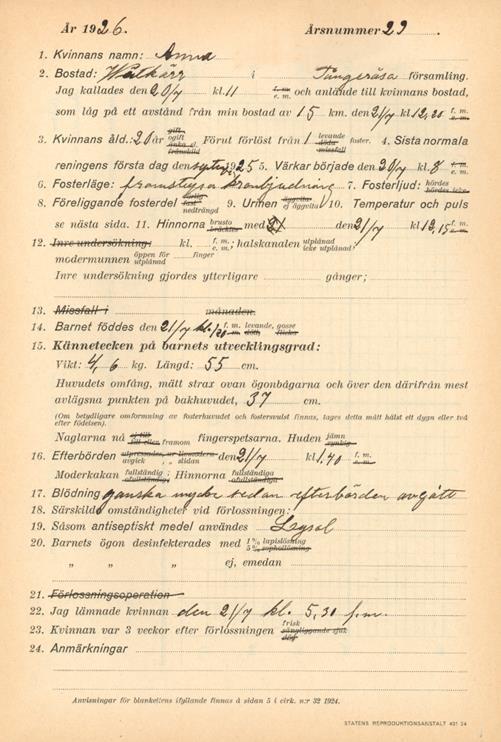 År 1926. Årsnummer 29.
1. Kvinnans namn: Anna
2. Bostad: Wallkärr i Tångeråsa församling.
Jag kallades den 20/7 kl. 11 f. m. e. m. och anlände till kvinnans bostad,
som låg på ett avstånd från min bostad av 15 km. den 21/7 kl 12,20 f. m. e. m.
3. Kvinnans åld. 20 år gift ogift änka frånskild Förut förlöst från 1 levande döda missfall foster. 4. Sista normala
reningens första dag den 1925 5. Värkar började den 20/7 kl. 8 f. m. e. m.
6. Fosterläge: framstupa kronbjudning 7. Fosterljud: hördes hördes icke.
8. Föreliggande fosterdel rörlig fast nedträngd 9. Urinen äggvita ej äggvita 10. Temperatur och puls
se nästa sida. 11. Hinnorna brusto bräcktes med den 21/7 kl 12,15 f. m. e. m.
12. Inre undersökning: kl. f. m. e. m.; halskanalen utplånad icke utplånad,
modermunnen öppen för utplånad finger
Inre undersökning gjordes ytterligare gånger;
13. Missfall i månaden.
14. Barnet föddes den 21/7 kl. 1/20 f. m. e. m. levande, död, gosse flicka
15. Kännetecken på barnets utvecklingsgrad:
Vikt: 4,6 kg. Längd: 55 cm.
Huvudets omfång, mätt strax ovan ögonbågarna och över den därifrån mest
avlägsna punkten på bakhuvudet, 37 cm.
(Om betydligare omformning av fosterhuvudet och fostersvulst finnas, tages detta mått hälst ett dygn eller två
efter födelsen).
Naglarna nå ej till till eller framom fingerspetsarna. Huden jämn rynkig.
16. Efterbörden avgick sidan den 21/7 kl 1,40 f. m. e. m.
Moderkakan fullständig ofullständig; Hinnorna fullständiga ofullständiga
17. Blödning ganska myden sedan efterbörden avgått
18. Särskilda omständigheter vid förlossningen:
19. Såsom antiseptiskt medel användes Lysol
20. Barnets ögon desinfekterades med 1 % lapislösning 5 % sophollösning
„ „ „ ej, emedan
21. Förlossningsoperation
22. Jag lämnade kvinnan den 21/7 kl. 5,30 f.m.
23. Kvinnan var 3 veckor efter förlossningen frisk sängliggande sjuk död
24. Anmärkningar
Anvisningar för blankettens ifyllande finnas å sidan 5 i cirk. n:r 32 1924.
STATENS REPRODUKTIONSANSTALT 401 24